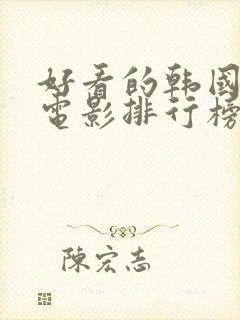 好看的韩國
電影排行榜
陳宏志